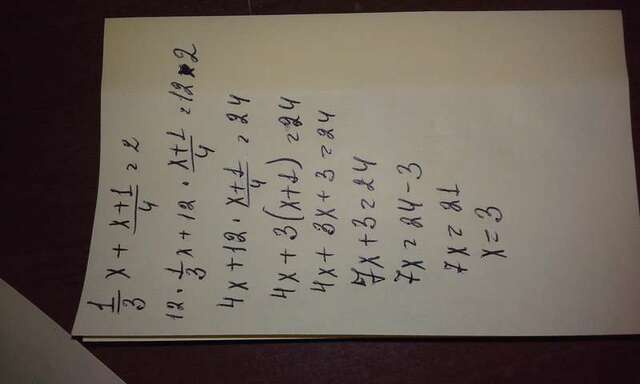 1/3 x + (x+1)/4 = 2
12 · 1/3 x + 12 · (x+1)/4 = 12 · 2
4x + 12 · (x+1)/4 = 24
4x + 3(x+1) = 24
4x + 3x + 3 = 24
7x + 3 = 24
7x = 24 - 3
7x = 21
x = 3